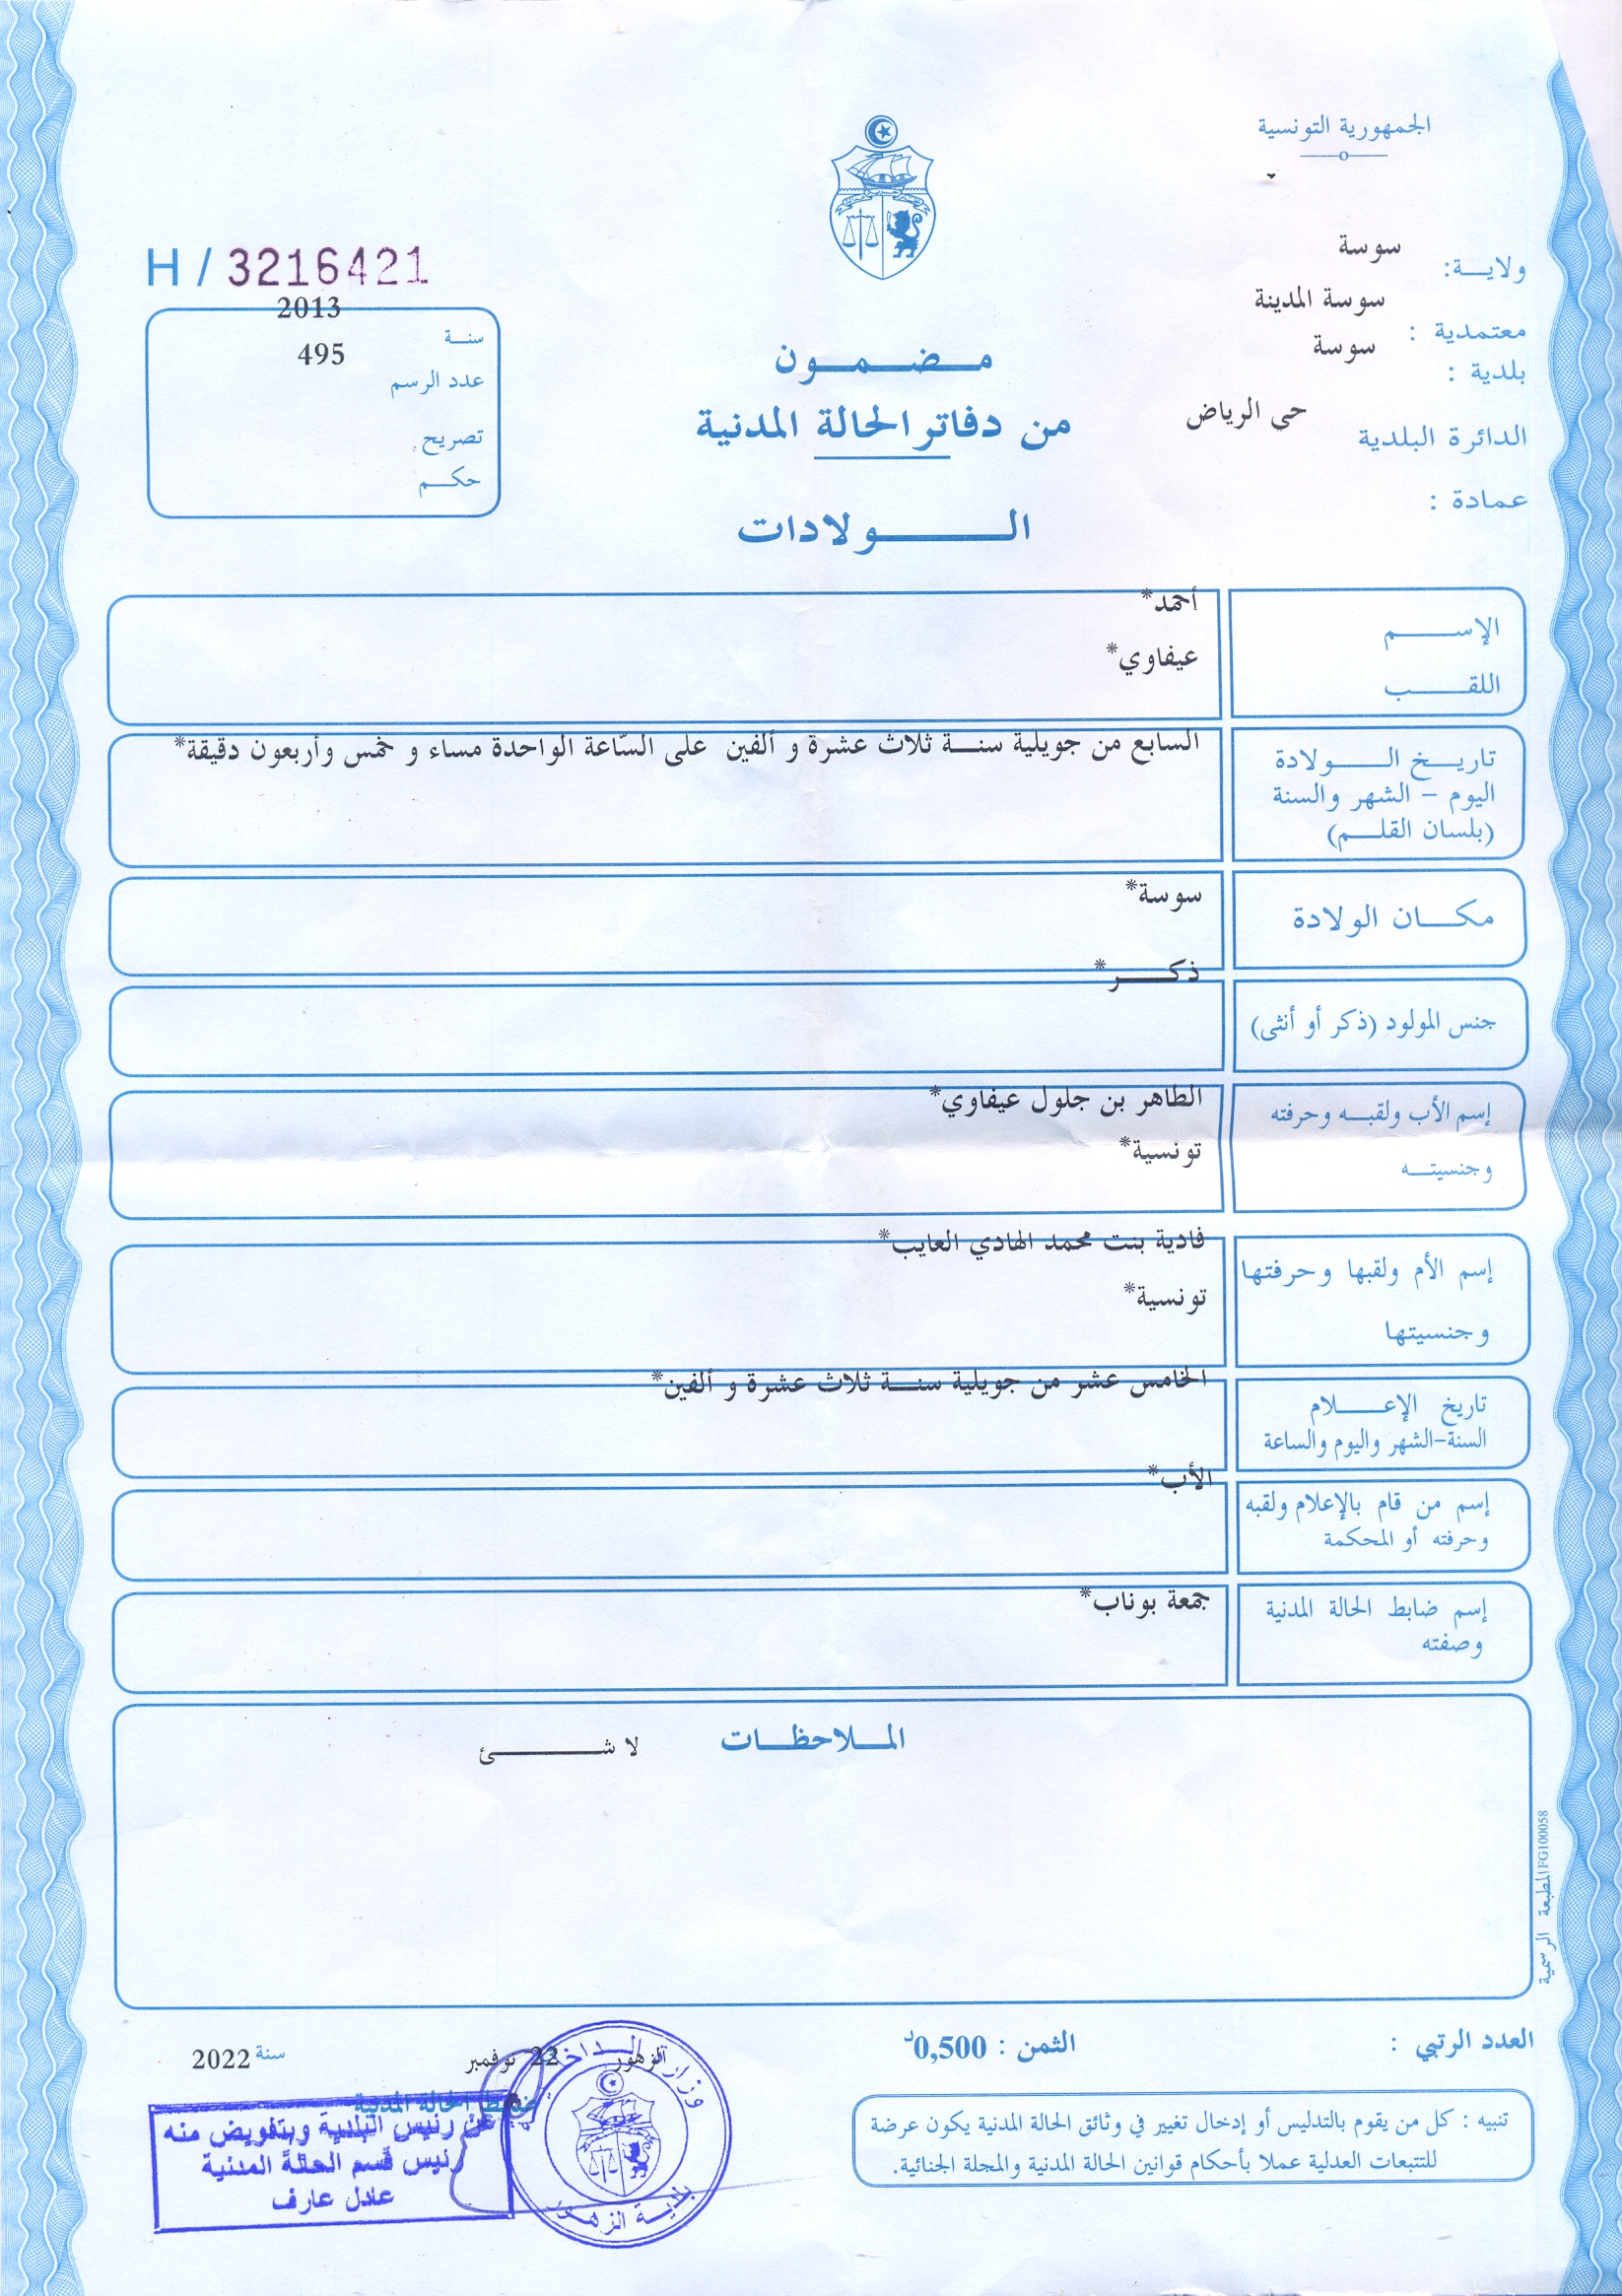 الجمهورية التونسية
ولايـــة: سوسة
معتمدية : سوسة المدينة
بلدية : سوسة
الدائرة البلدية حى الرياض
عمادة :
H / 3216421
سنــة 2013
عدد الرسم 495
تصريح
حكــم
مــضــمــون
من دفاتر الحالة المدنية
الــــولادات
الإســــم أحمد*
اللقــــب عيفاوي*
تاريــخ الــــولادة السابع من جويلية سنــة ثلاث عشرة و ألفين على السّاعة الواحدة مساء و خمس وأربعون دقيقة*
اليوم – الشهر والسنة
(بلسان القلــم)
مكــان الولادة سوسة*
جنس المولود (ذكر أو أنثى) ذكــــر*
إسم الأب ولقبــه وحرفته الطاهر بن جلول عيفاوي*
وجنسيتــه تونسية*
إسم الأم ولقبها وحرفتها فادية بنت محمد الهادي العايب*
وجنسيتها تونسية*
تاريخ الإعــــلام الخامس عشر من جويلية سنــة ثلاث عشرة و ألفين*
السنة-الشهر واليوم والساعة
إسم من قام بالإعلام ولقبه الأب*
وحرفته أو المحكمة
إسم ضابط الحالة المدنية جمعة بوناب*
وصفته
المــلاحظــات
لا شــــئ
المطبعة الرسمية FG100058
العدد الرتبي :
الثمن : 0,500د
الزهور 22 نوفمبر سنة 2022
ضابط الحالة المدنية
عن رئيس البلدية وبتفويض منه
رئيس قسم الحالة المدنية
عادل عارف
وزارة الــداخلية
بلديــة الزهــور
تنبيه : كل من يقوم بالتدليس أو إدخال تغيير في وثائق الحالة المدنية يكون عرضة
للتتبعات العدلية عملا بأحكام قوانين الحالة المدنية والمجلة الجنائية.